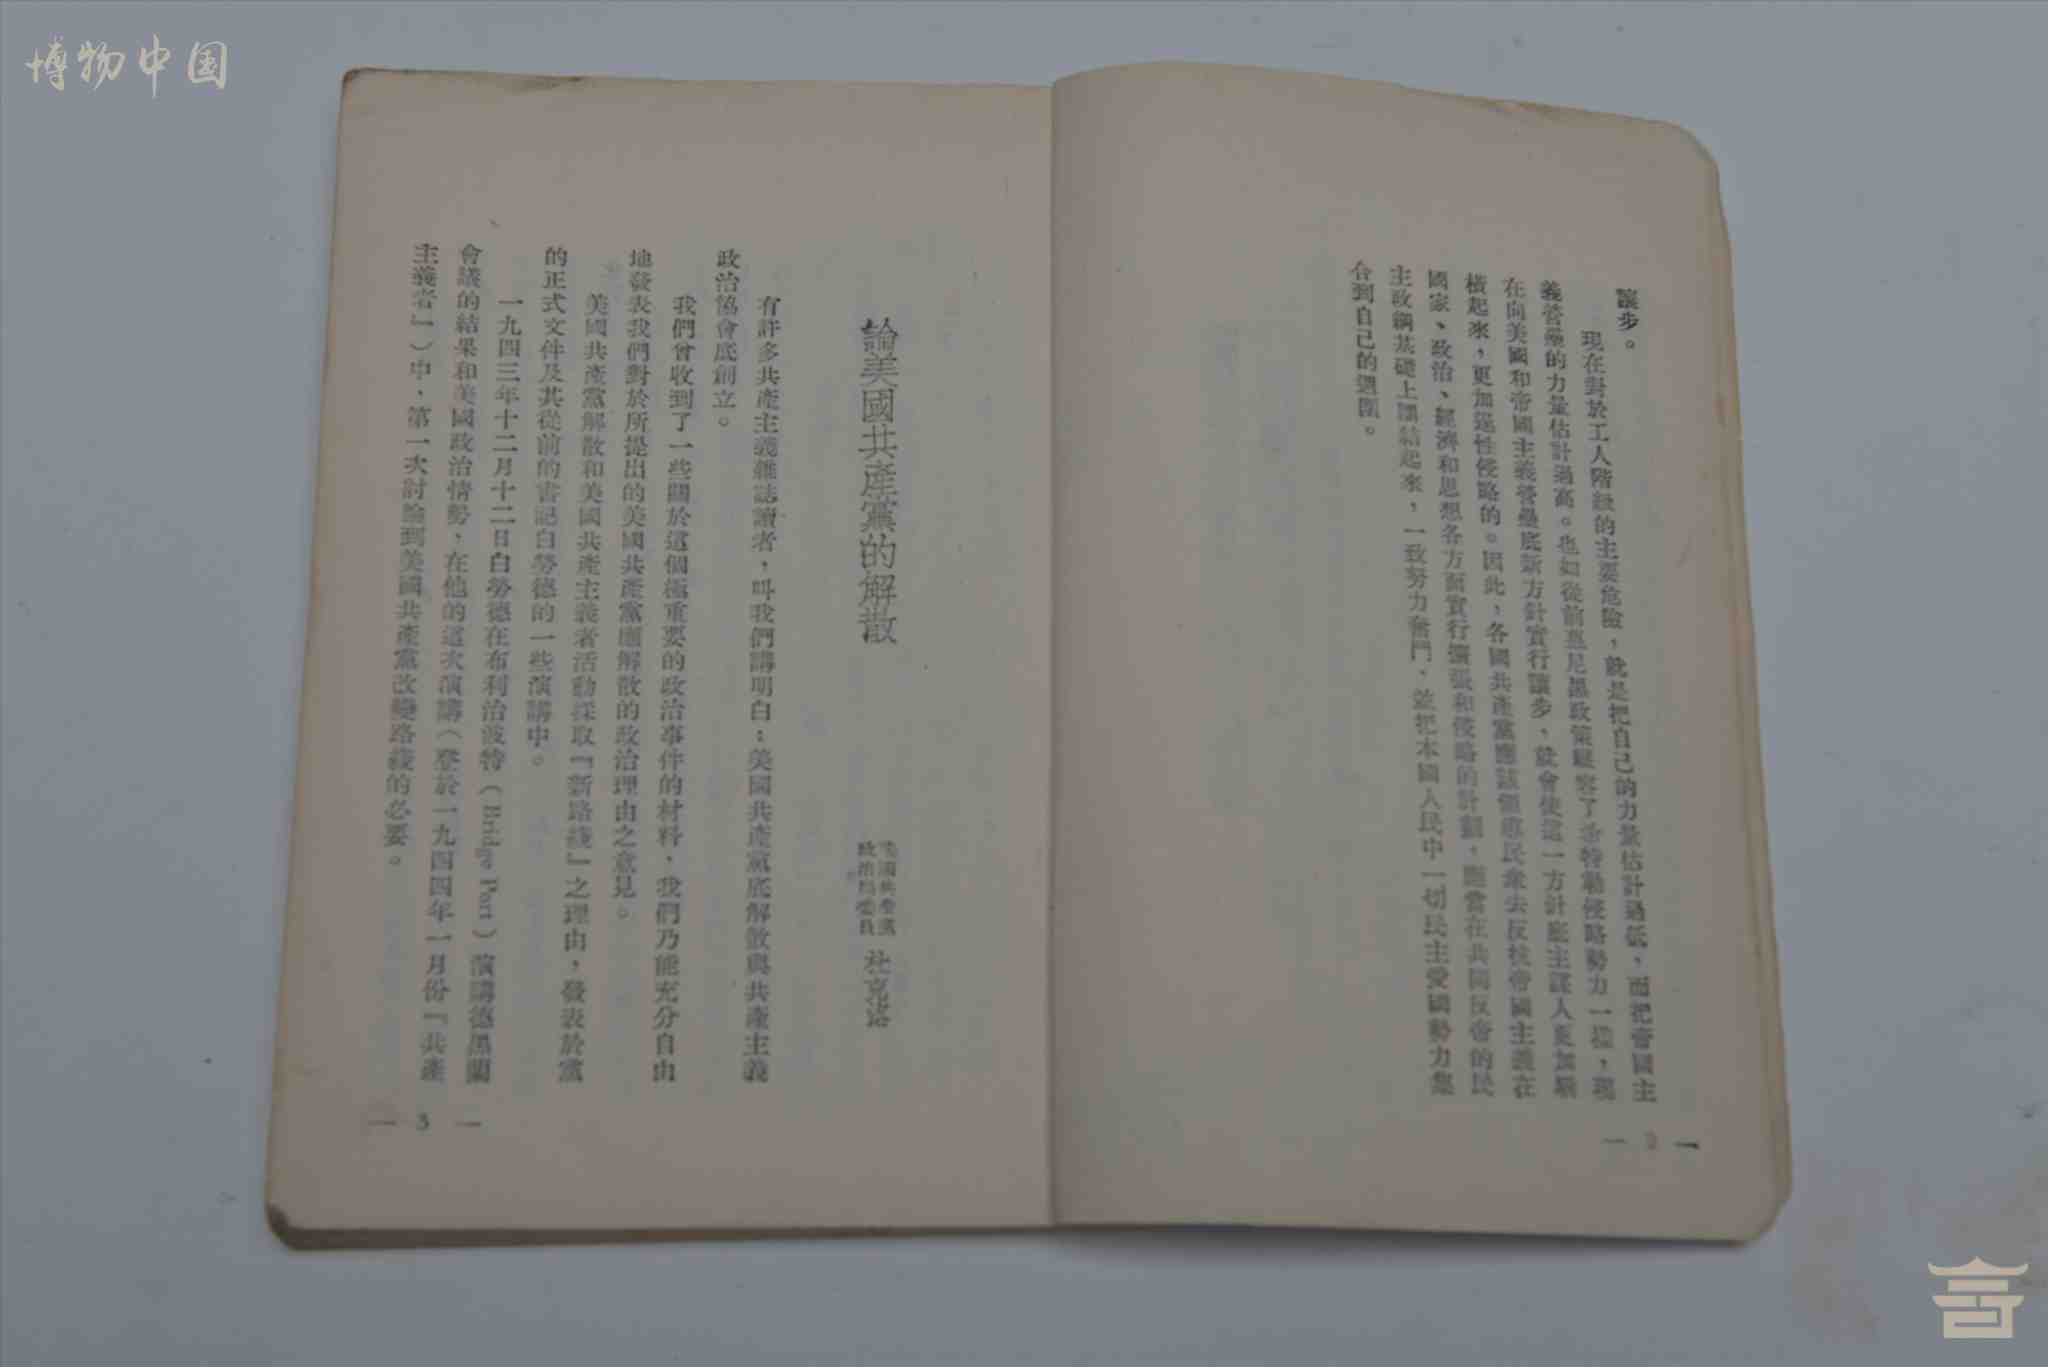 博物中国
讓步。
現在對於工人階級的主要危險，就是把自己的力量估計過低，而把帝國主
義營壘的力量估計過高。也如從前慕尼黑政策縱容了希特勒侵略勢力一樣，現
在向美國和帝國主義營壘底新方針實行讓步，就會使這一方針底主謀人更加驕
橫起來，更加逞性侵略的。因此，各國共產黨應該領導民衆去反抗帝國主義在
國家、政治、經濟和思想各方面實行擴張和侵略的計劃，應當在共同反帝的民
主政綱基礎上團結起來，一致努力奮鬥，並把本國人民中一切民主愛國勢力集
合到自己的週圍。
— 2 —
論美國共產黨的解散
政治局委員 杜克洛
有許多共產主義雜誌讀者，叫我們講明白：美國共產黨底解散與共產主義
政治協會底創立。
我們曾收到了一些關於這個極重要的政治事件的材料，我們乃能充分自由
地發表我們對於所提出的美國共產黨應解散的政治理由之意見。
美國共產黨解散和美國共產主義者活動採取『新路綫』之理由，發表於黨
的正式文件及其從前的書記白勞德的一些演講中。
一九四三年十二月十二日白勞德在布利治波特（Bridge Port）演講德黑蘭
會議的結果和美國政治情勢，在他的這次演講（登於一九四四年一月份『共產
主義者』）中，第一次討論到美國共產黨改變路綫的必要。
— 3 —